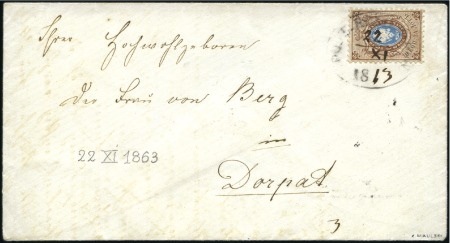 22
XI
1863
Ihrer Hochwohlgeboren
Der Frau von Berg
in
Dorpat
22 XI 1863
3